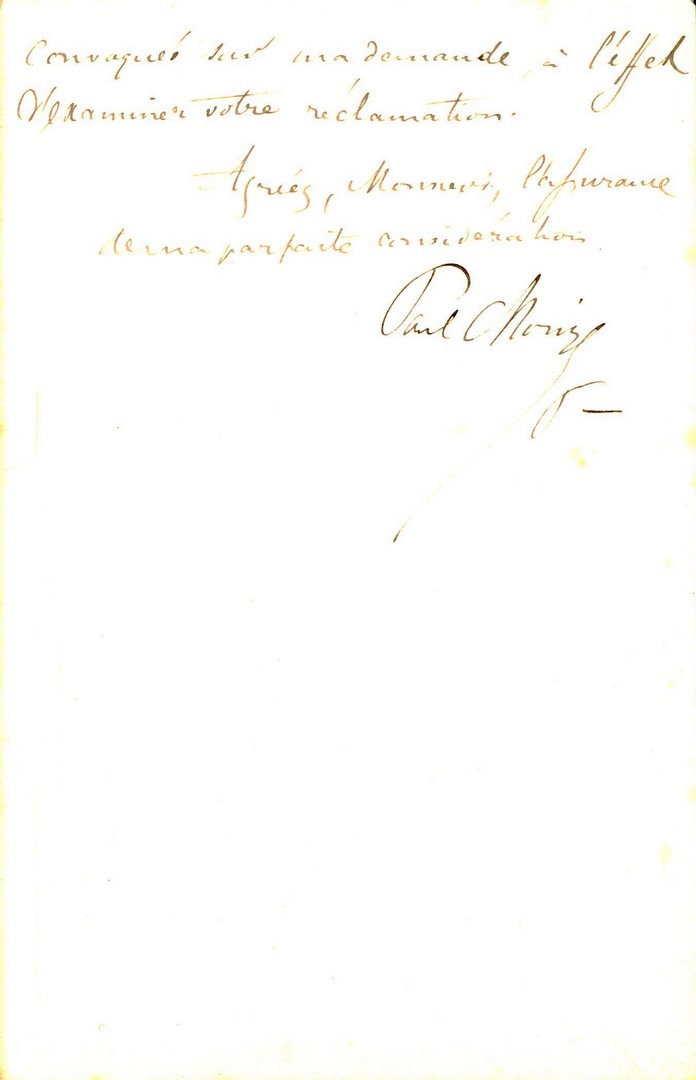 Convoqués sur ma demande, à l'effet
d'examiner votre réclamation.
Agréez, Monsieur, l'assurance
de ma parfaite considération
Paul